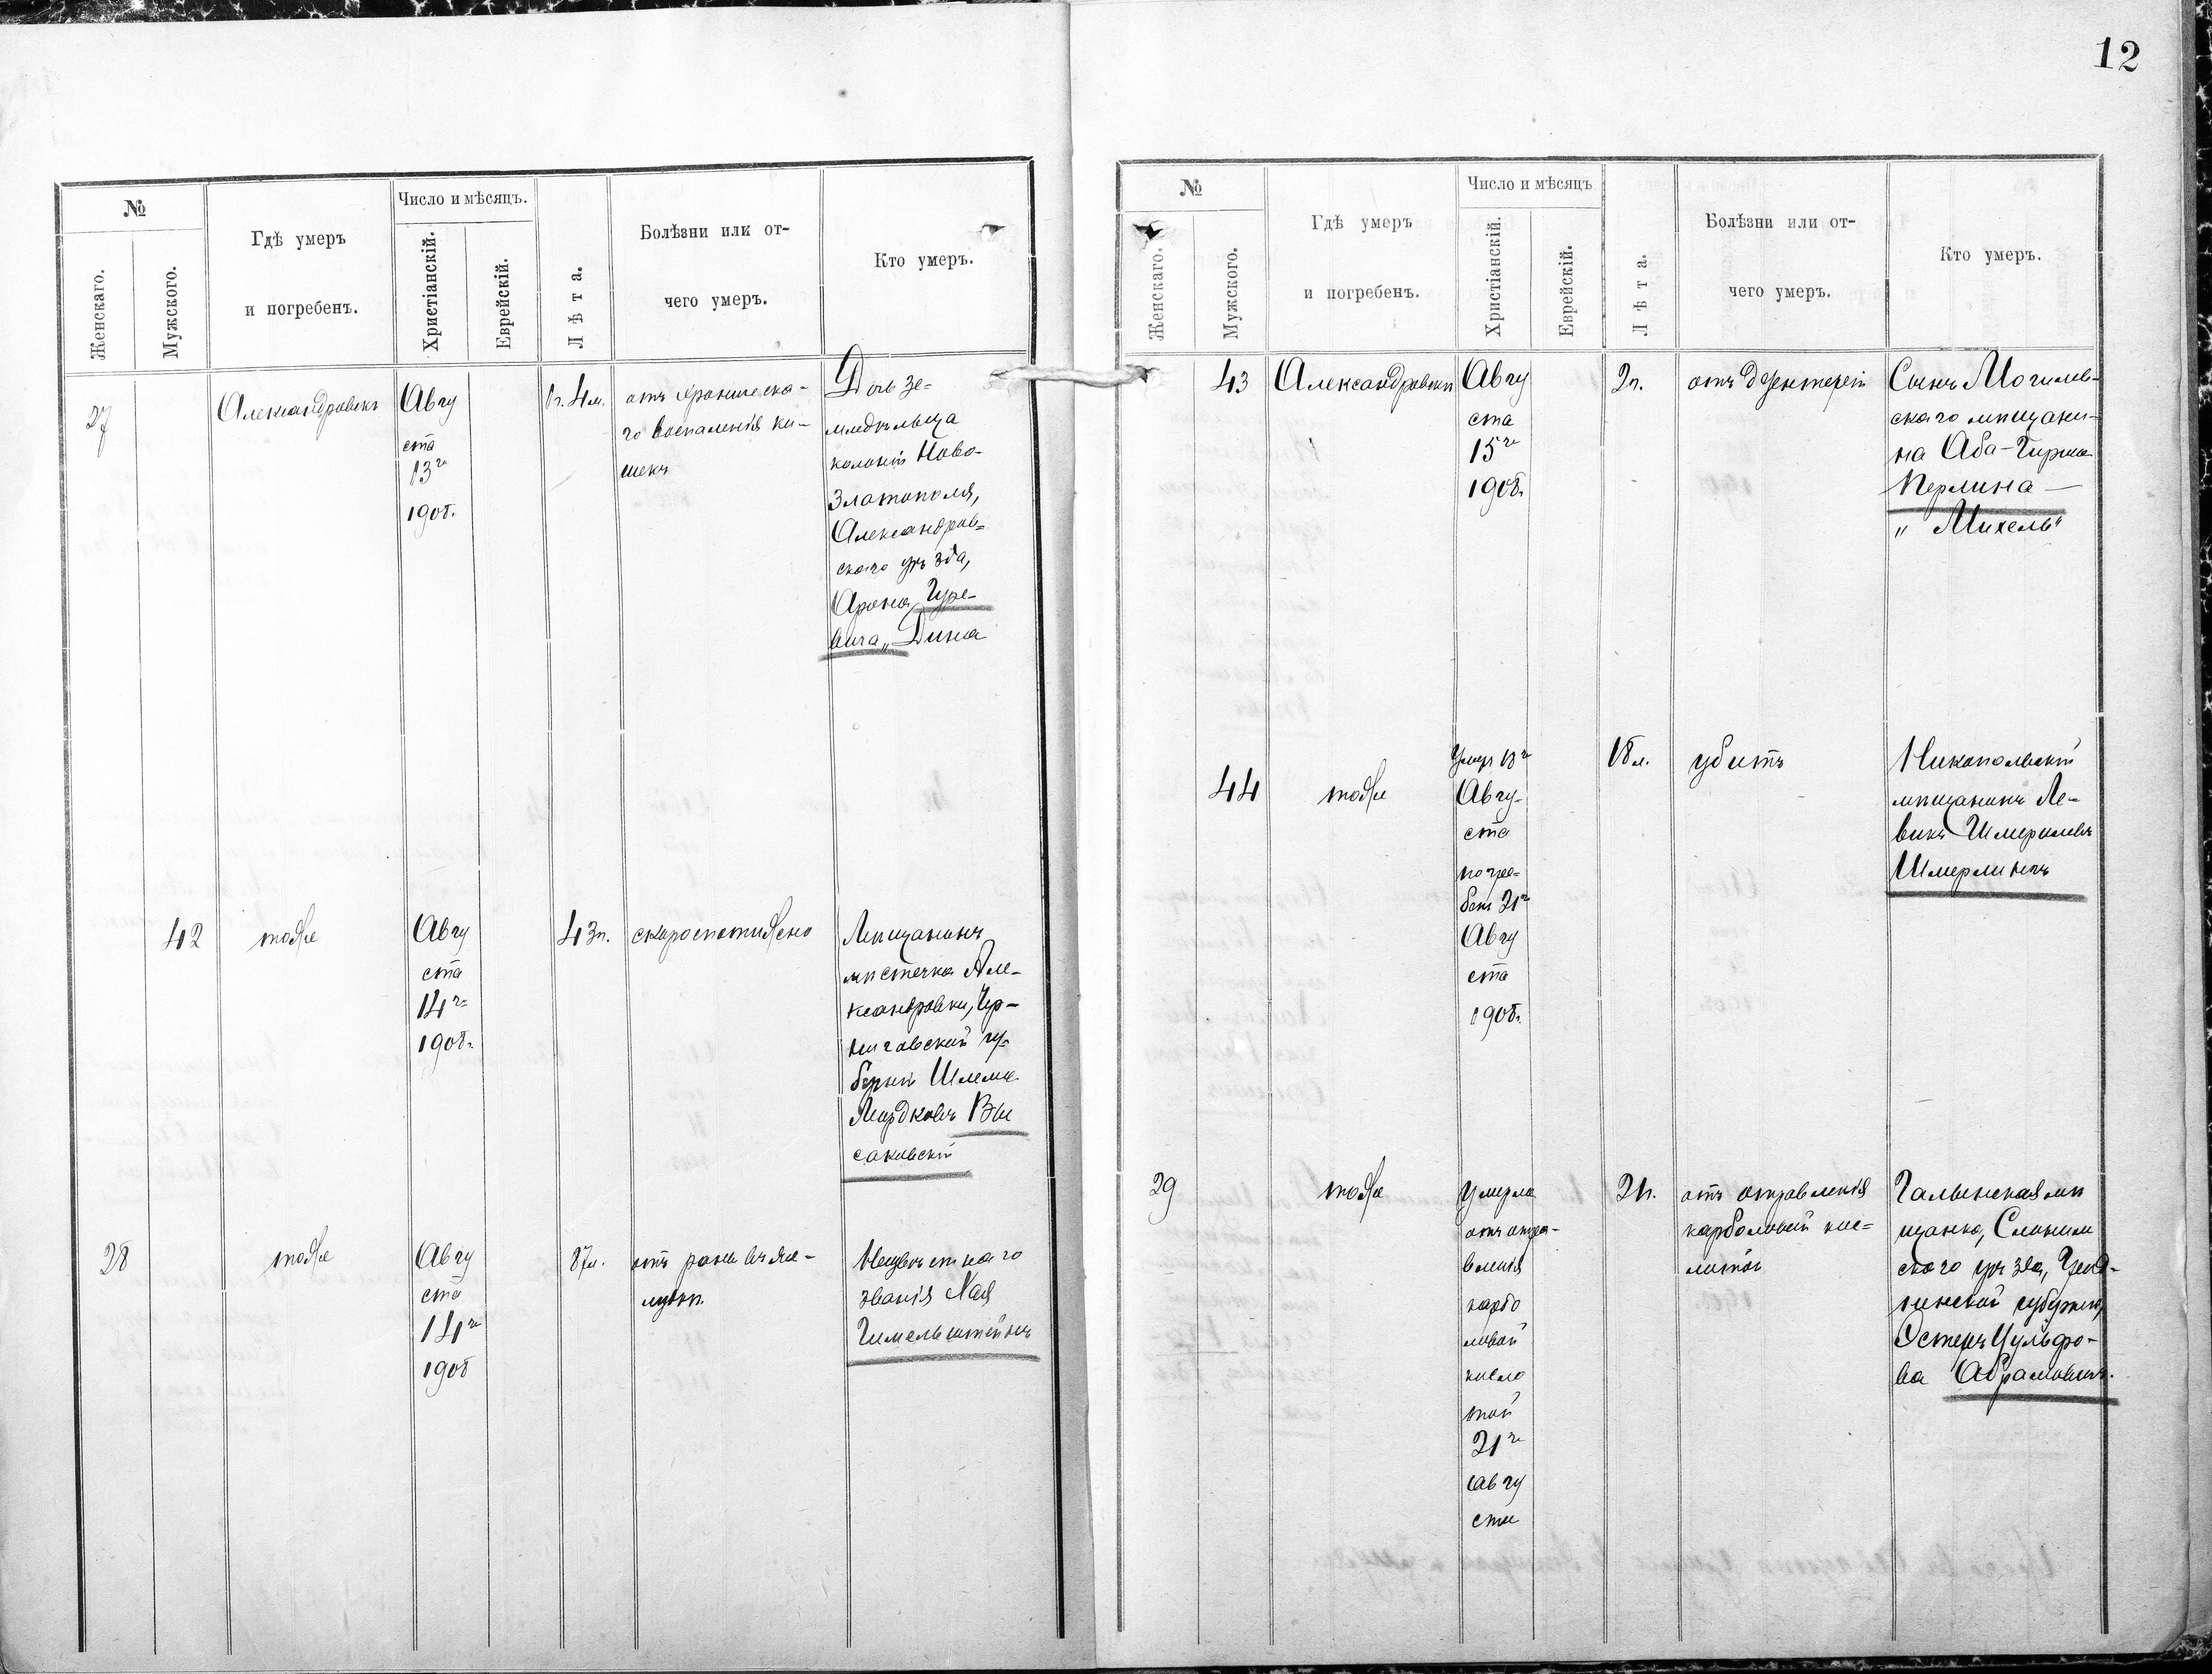 12
№
Женскаго.
Мужского.
Гдѣ умеръ
и погребенъ.
Число и мѣсяцъ.
Христіанскій.
Еврейскій.
Лѣта.
Болѣзни илк от-
чего умеръ.
Кто умеръ.
27
Александровскъ
Авгу
ста
13го
1908.
1г. 4м.
отъ хроническа-
го воспаленія ки-
шекъ
Дочь зе-
мледѣльца
колоніи Ново-
Златополя,
Александров=
скаго уѣзда,
Арона Гуре-
вича „Дина
42
тоже
Авгу
ста
14го
1908г.
43г.
скоропостижно
Мѣщанинъ
мѣстечка Але-
ксандровки, Чер-
ниговской гу-
берніи Шлема
Мордковъ Вы
саковскій
28
тоже
Авгу
ста
14го
1908
87л.
отъ раны въ же-
лудкѣ
Неизвѣстнаго
званія Хая
Гимельштейнъ
№
Женскаго.
Мужского.
Гдѣ умеръ
и погребенъ.
Число и мѣсяцъ
Христіанскій.
Еврейскій.
Лѣта.
Болѣзни или от-
чего умеръ.
Кто умеръ.
43
Александровскъ
Авгу
ста
15го
1908г.
2г.
отъ дезентеріи
Сынъ Могилев-
скаго мѣщани-
на Аба-Гирша
Перлина —
„ Михель“
44
тоже
Умеръ 18го
Авгу-
ста
погре=
бенъ 21го
Авгу
ста
1908г.
18л.
убитъ
Никопольскій
мѣщанинъ Ле-
викъ Шмерилевъ
Шмерлингъ
29
тоже
Умерла
отъ отра-
вленія
карбо
ловой
кисло
той
21го
Авгу
ста
21.
отъ отравленія
карболовой кис=
лотой
мѣ
щанка, Слоним
скаго уѣзда, Грод-
ненской губерніи,
Эстеръ
ва Абрамовичъ.